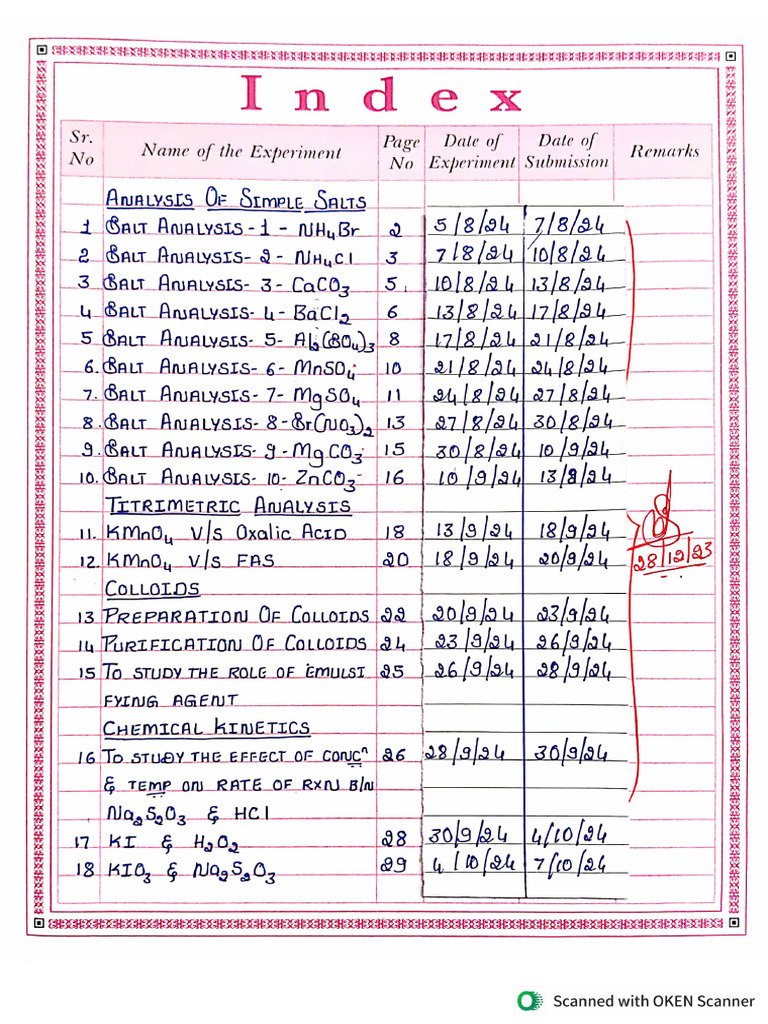 Index
Sr. No Name of the Experiment Page No Date of Experiment Date of Submission Remarks
ANALYSIS OF SIMPLE SALTS
1 SALT ANALYSIS-1-NH4Br 2 5/8/24 7/8/24
2 SALT ANALYSIS-2-NH4Cl 3 7/8/24 10/8/24
3 SALT ANALYSIS-3-CaCO3 5 10/8/24 13/8/24
4 SALT ANALYSIS-4-BaCl2 6 13/8/24 17/8/24
5 SALT ANALYSIS-5-Al2(SO4)3 8 17/8/24 21/8/24
6. SALT ANALYSIS-6-MnSO4 10 21/8/24 24/8/24
7. SALT ANALYSIS-7-MgSO4 11 24/8/24 27/8/24
8. SALT ANALYSIS-8-Sr(NO3)2 13 27/8/24 30/8/24
9. SALT ANALYSIS-9-MgCO3 15 30/8/24 10/9/24
10. SALT ANALYSIS-10-ZnCO3 16 10/9/24 13/8/24
TITRIMETRIC ANALYSIS
11. KMnO4 V/s Oxalic ACID 18 13/9/24 18/9/24
12. KMnO4 V/s FAS 20 18/9/24 20/9/24 28/12/23
COLLOIDS
13 PREPARATION OF COLLOIDS 22 20/9/24 23/9/24
14 PURIFICATION OF COLLOIDS 24 23/9/24 26/9/24
15 TO STUDY THE ROLE OF EMULSI 25 26/9/24 28/9/24
FYING AGENT
CHEMICAL KINETICS
16 TO STUDY THE EFFECT OF CONCn 26 28/9/24 30/9/24
& TEMP ON RATE OF RXN B/N
Na2S2O3 & HCl
17 KI & H2O2 28 30/9/24 4/10/24
18 KIO3 & Na2S2O3 29 4/10/24 7/10/24
Scanned with OKEN Scanner